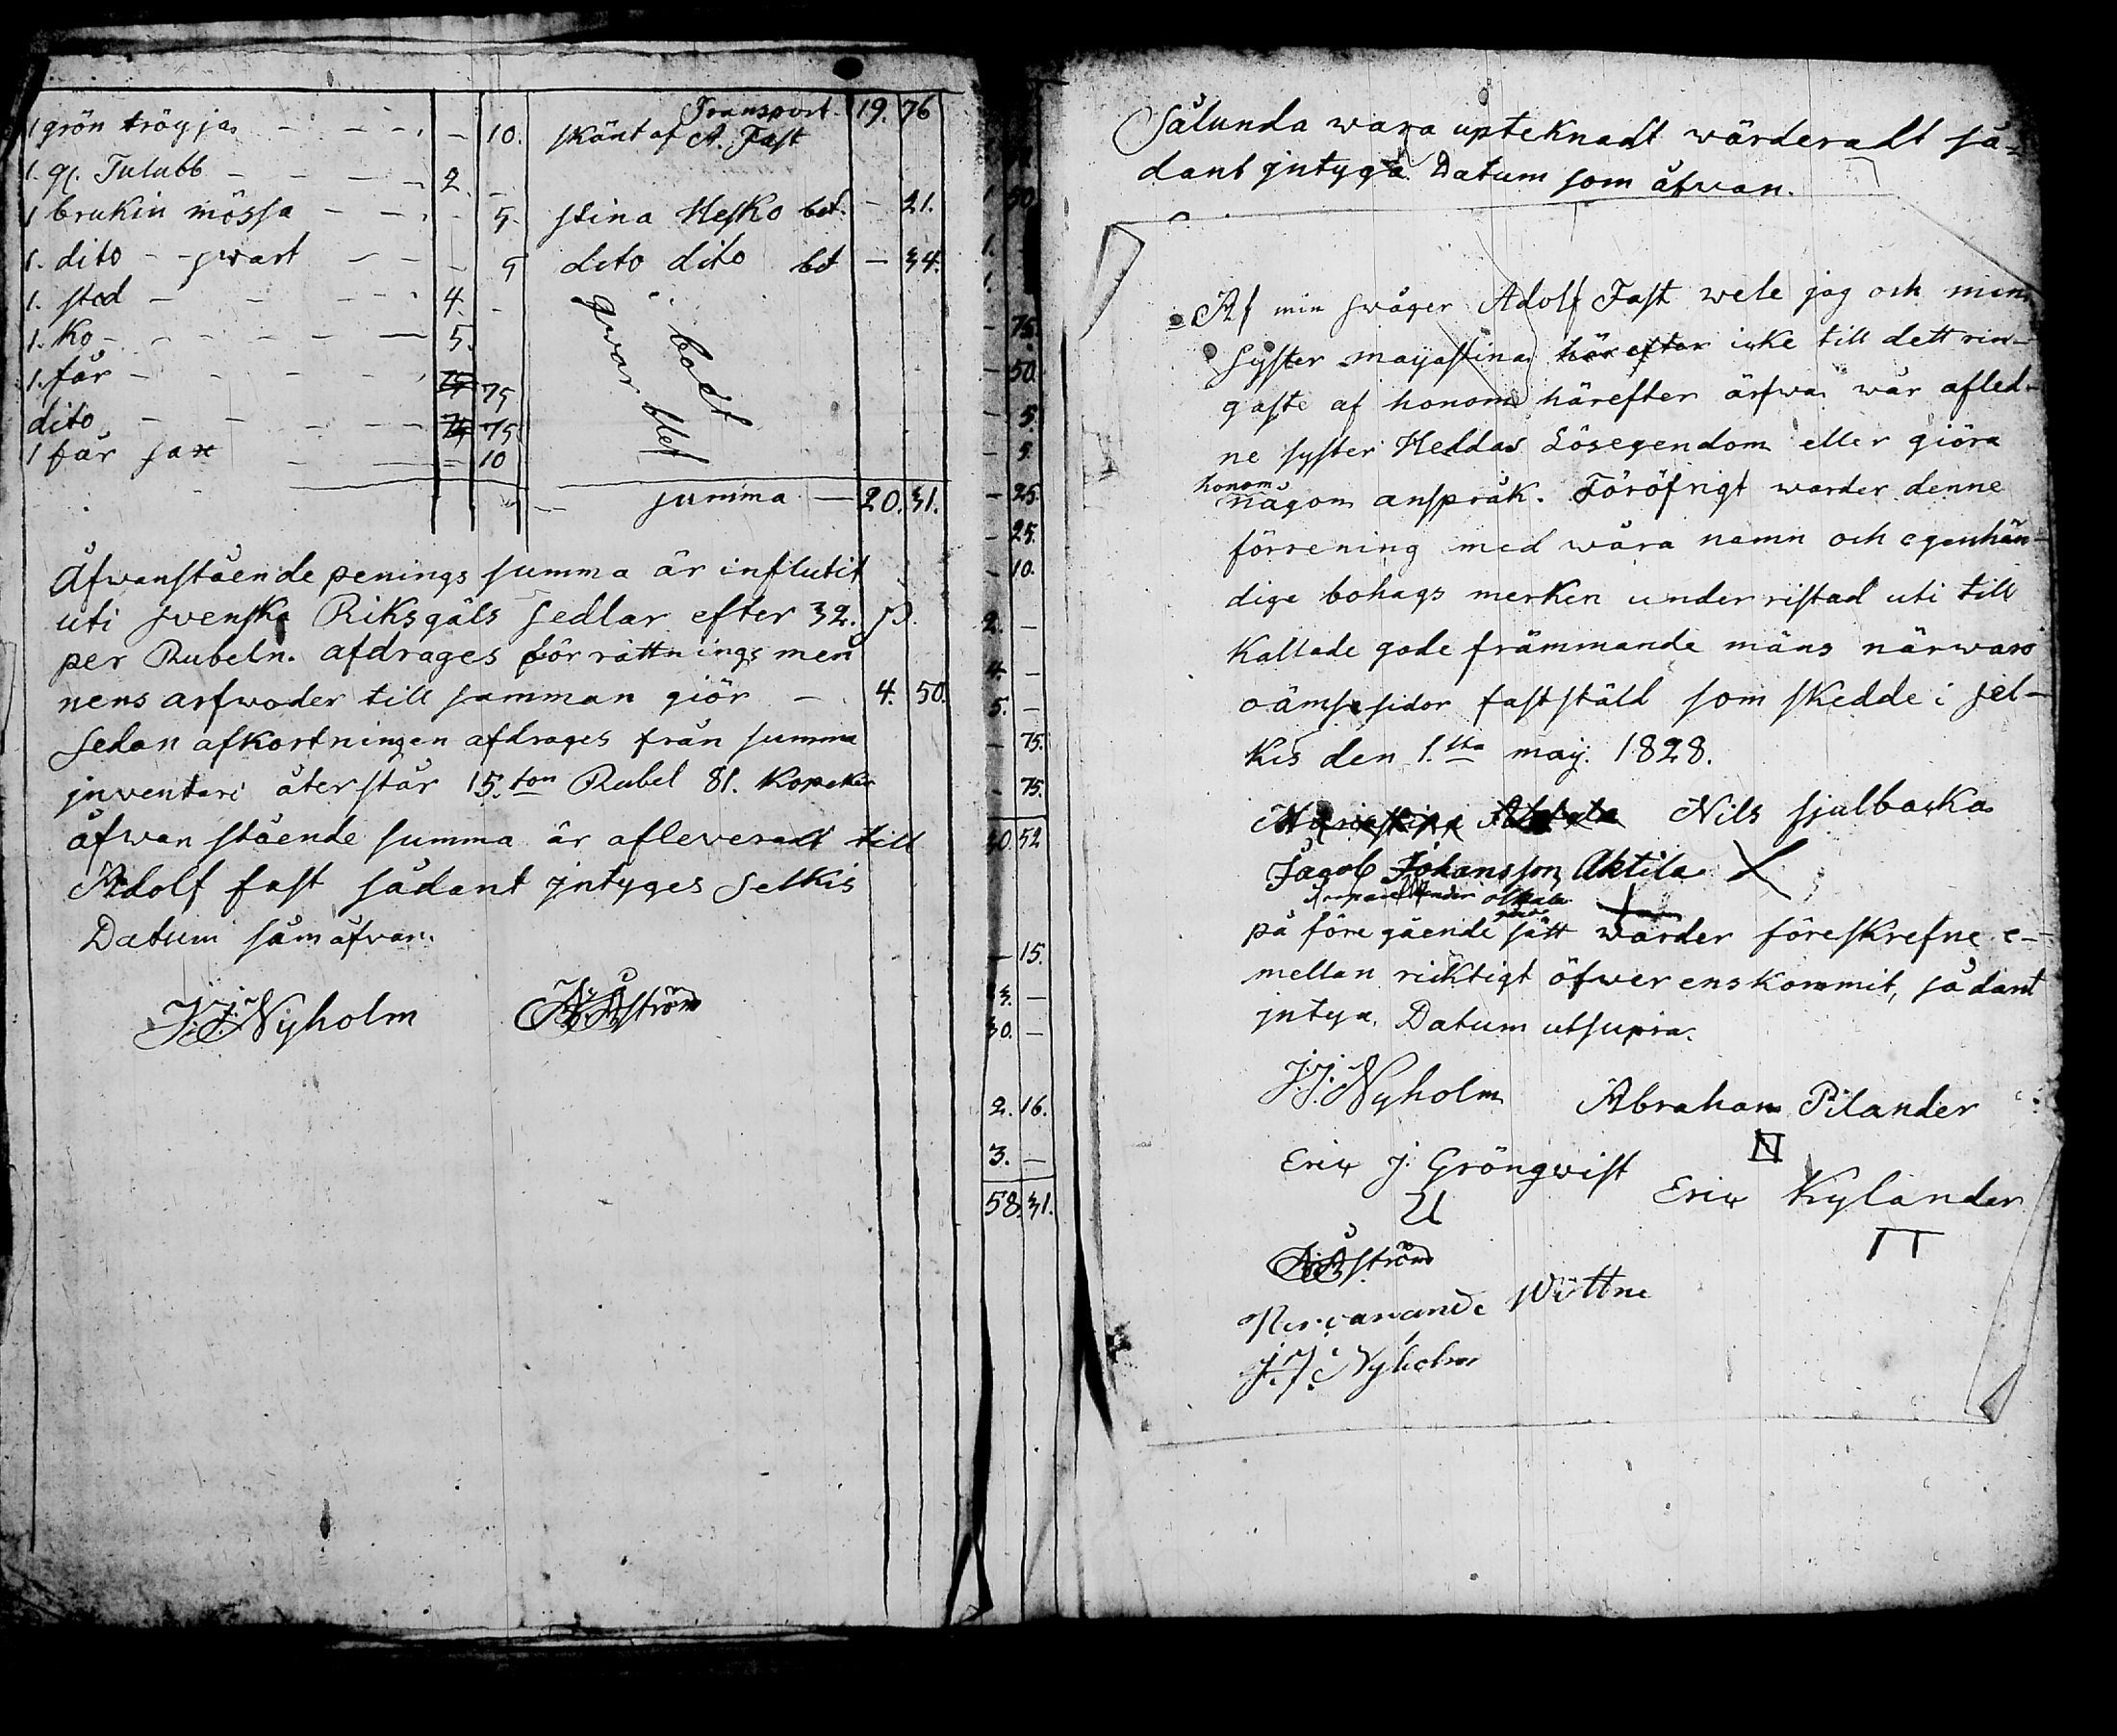 Transport 19. 76
1 grön tröyja - - - - 10. skänt af A. Fast
1. gl. Tulubb - - - - 2. -
1 brukin mössa - - - - 5. stina Hesko bet. - 21.
1. dito - - swart - - - 5 dito dito bet - 34.
1. stod - - - - 4. -
1. Ko - - - - - 5.
1. får - - - - - 75
dito - - - - - 75
1 får sax - - - 10
qwar blef i bodt
summa - 20. 31.
åfwanstående penings summa är influtit
uti swenska Riksgäls sedlar efter 32. s.
per Rubeln. afdrages förrättnings men
nens arfwoder till samman giör - 4. 50.
sedan afkortningen afdrages från summa
jnventari återstår 15.ton Rubel 81. Kopeker
åfwan stående summa är afleveradt till
Adolf fast sådant jntyges Selkis
Datum såm åfvan.
J: J: Nyholm A: Åström
50.
1.
1.
- 75.
- 50.
- 5.
- 5.
- 25.
- 25.
- 10.
2. -
4. -
5. -
- 75.
- 75.
52
- 15.
3. -
30. -
2. 16.
3. -
58. 31.
Sålunda wara upteknadt wärderadt så-
dant jntyga Datum som åfwan.
Af min swåger Adolf Fast wele jag och min
syster mayastina här efter icke till dett rin-
gaste af honom härefter ärfwa wår afled-
ne syster Heddas Lösegendom eller giöra
honom
någon anspråk. Föröfrigt warder denne
förrening med wåra namn och egenhän-
dige bohags merken under ristad uti till
Kallade gode främmande mäns närwaro
ömse sidor fastställd som skedde i sel-
kis den 1.sta maij. 1828.
Nils sjulbacka
Jacob Johansson Aktila
på före gående sätt warder föreskrefne e-
mellan ricktigt öfwerenskommit, sådant
jntyga. Datum utsupra.
J: J: Nyholm Abraham Pilander
N
Eric J: Gröngwist Eric Kylander
U
A: Åström
Nervarande Wittne
J: J: Nyholm